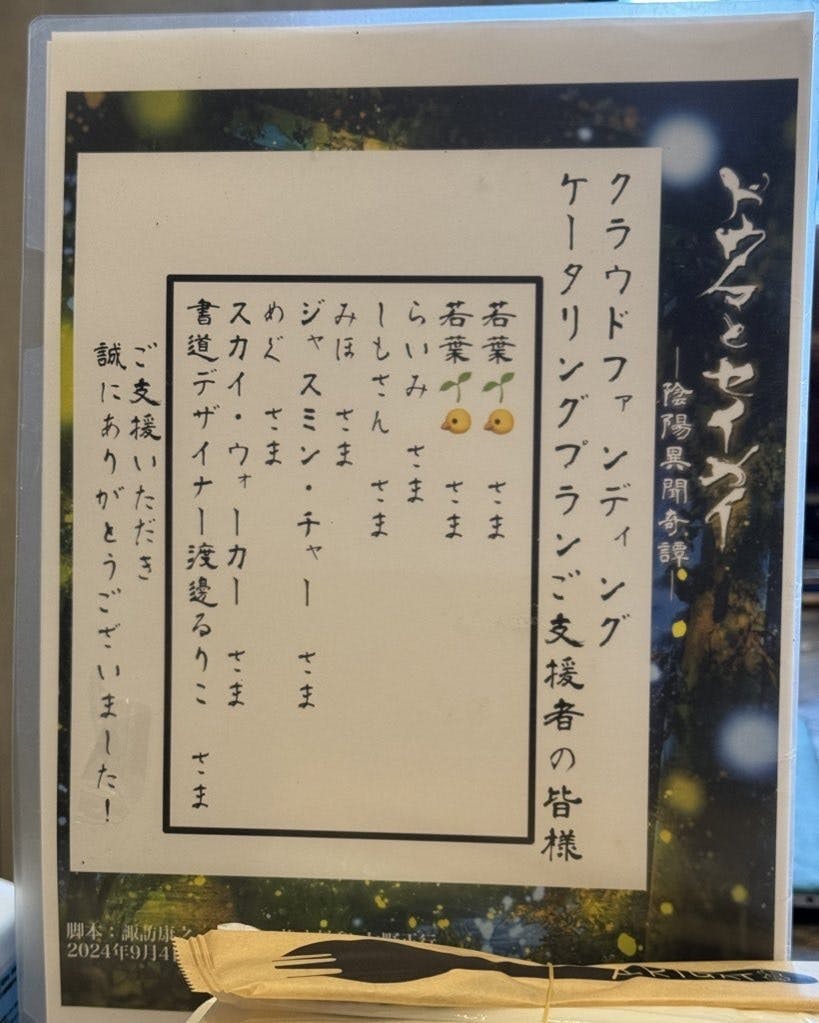 ドウマとセイメイ
―陰陽異聞奇譚―
クラウドファンディング
ケータリングプランご支援者の皆様
若葉🌱🐤 さま
若葉🌱🐤 さま
らいみ さま
しもさん さま
みほ さま
ジャスミン・チャー さま
めぐ さま
スカイ・ウォーカー さま
書道デザイナー渡邊るりこ さま
ご支援いただき
誠にありがとうございました!
脚本:諏訪康之
2024年9月4